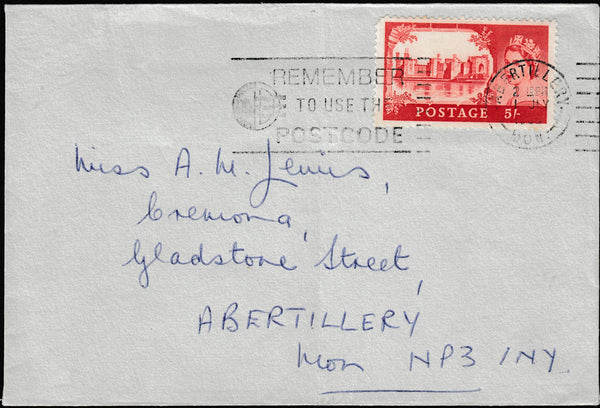 REMEMBER
TO USE THE
POSTCODE
POSTAGE 5/-
ABERTILLERY
MON
Miss A. M. Lewis,
Cremona,
Gladstone Street,
ABERTILLERY
Mon NP3 1NY